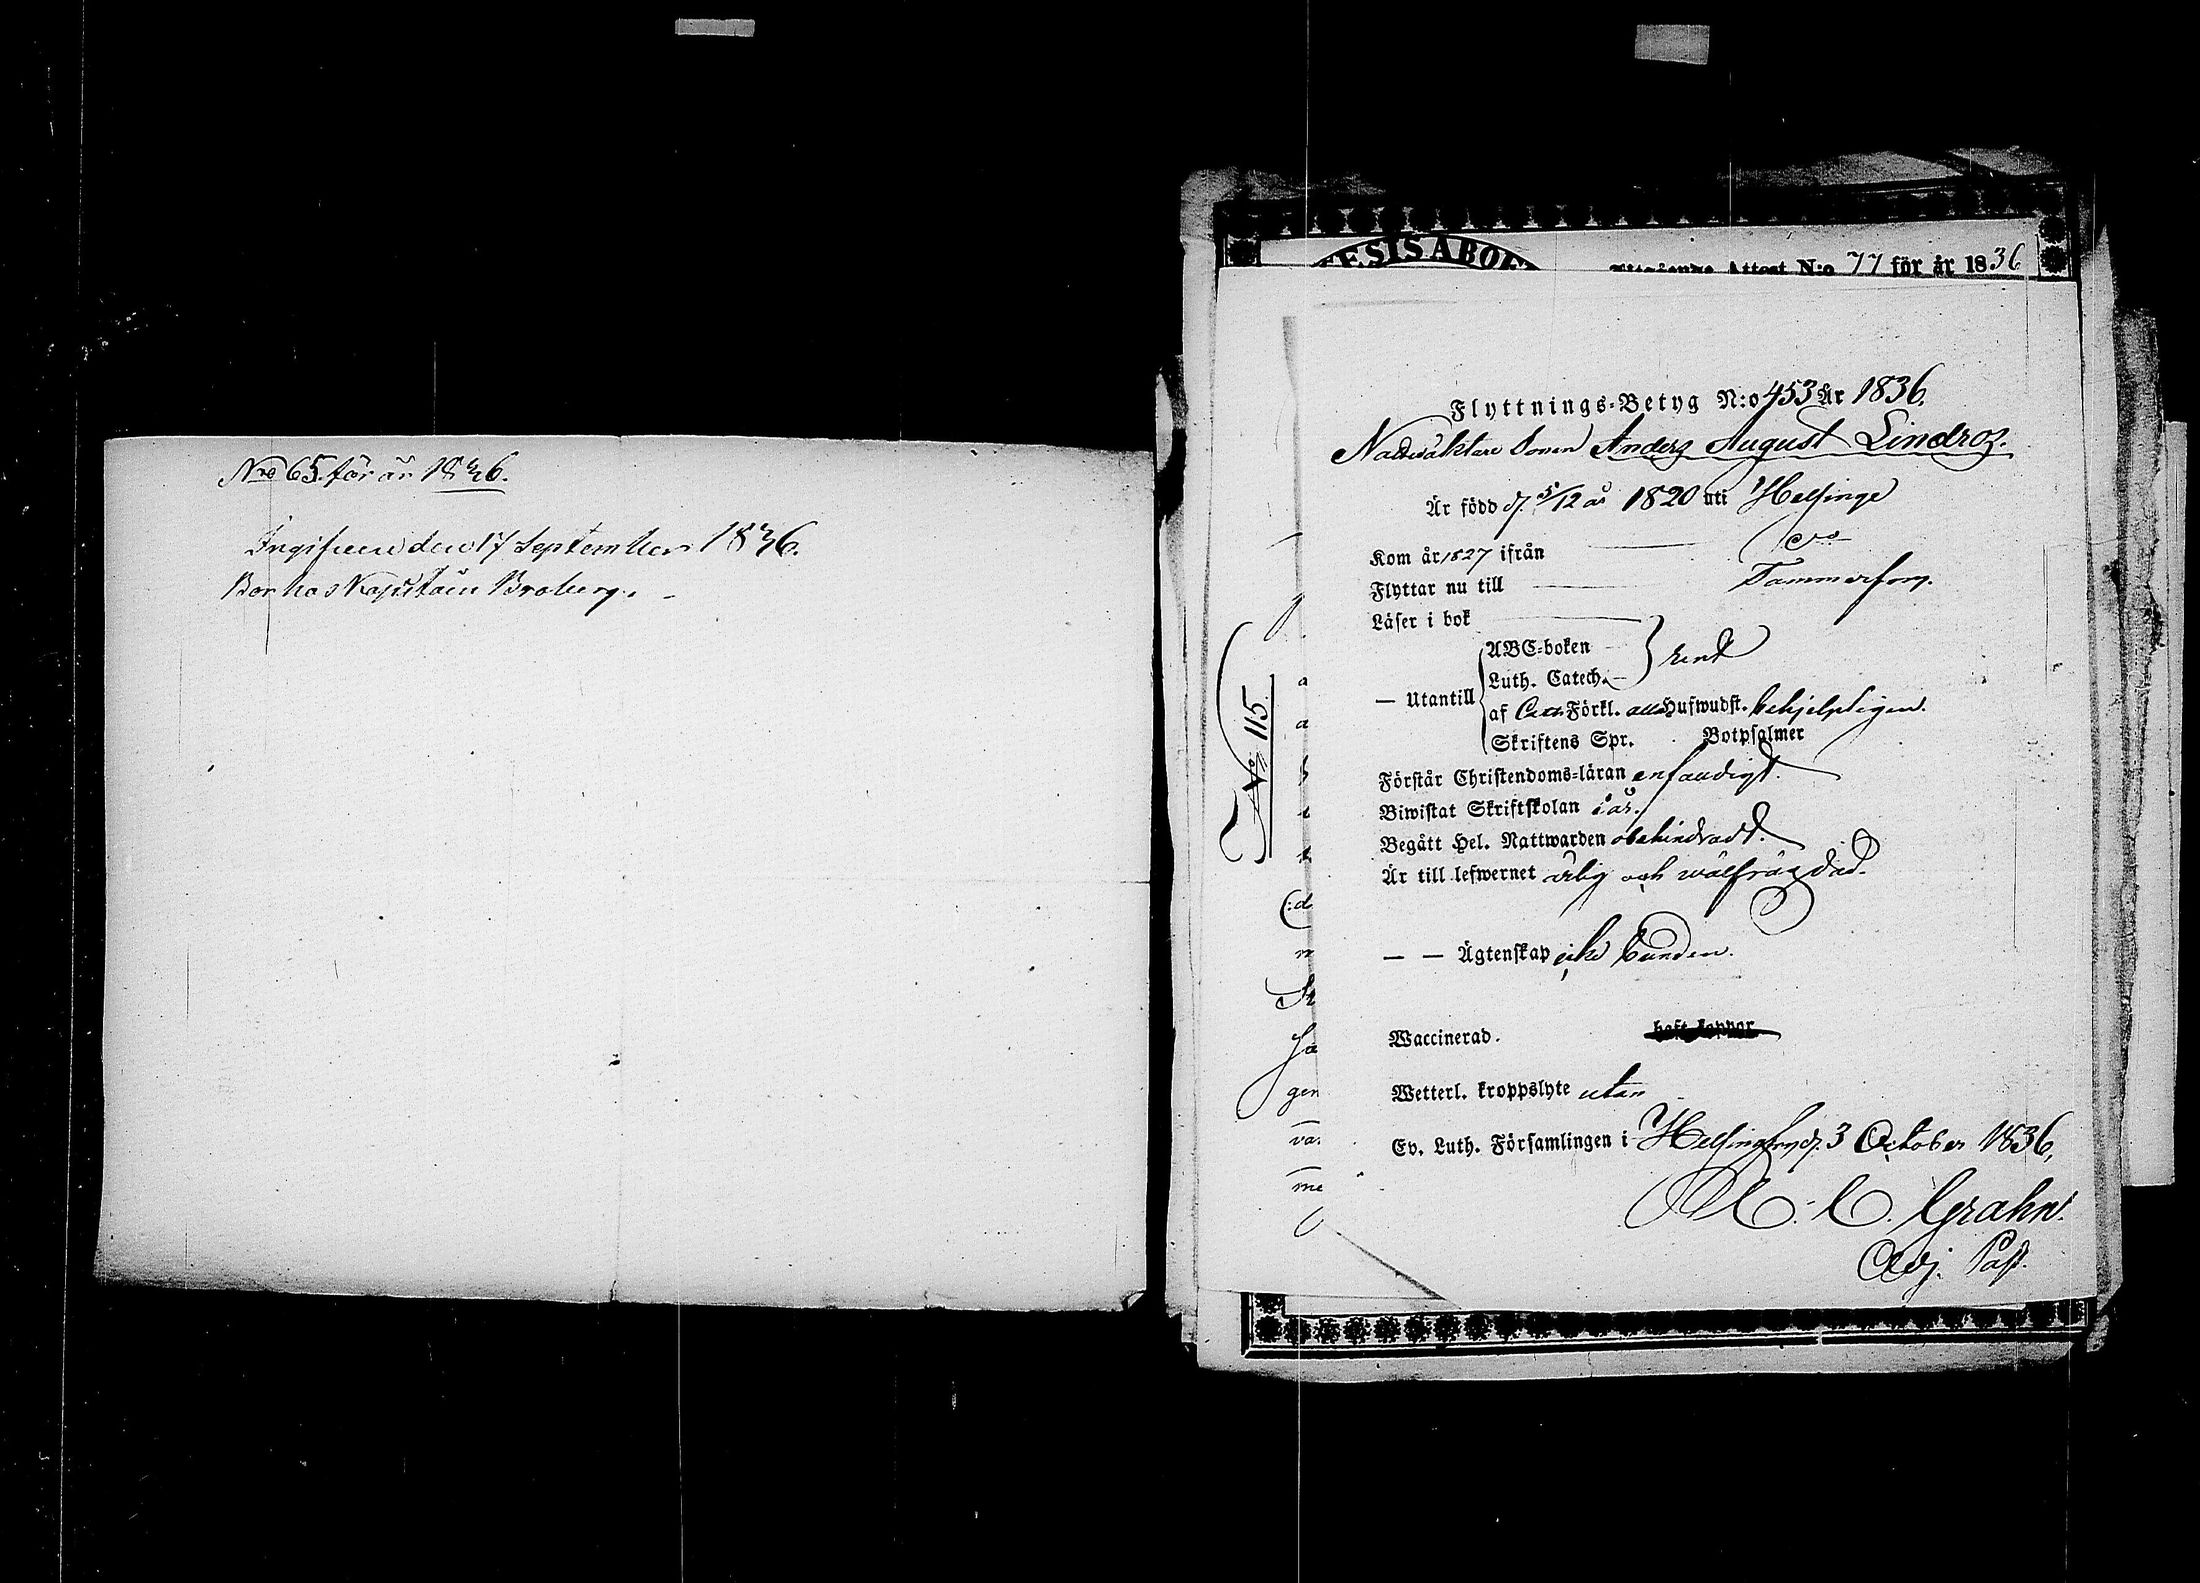 Nro 65. för år 1836.
Ingifven den 17 September 1836.
Bor hos Kapitain Broberg.
Attest N:o 77 för år 1836
N:o 115.
Flyttnings-Betyg N:o 453 År 1836.
Sonen Anders August Lindroz.
Är född d. 5/12 år 1820 uti Helsinge
Kom år 1827 ifrån
Flyttar nu till Tammerfors.
Läser i bok
ABC-boken
Luth. Catech. rent
— Utantill
af Cat. Förkl. alla Hufwudst. behjelpligen.
Skriftens Spr. Botpsalmer
Förstår Christendoms-läran enfaldigt.
Biwistat Skriftskolan i år.
Begått Hel. Nattwarden obehindradt.
Är till lefwernet ärlig och wälfrägdad.
— — Ägtenskap icke bunden.
Waccinerad. haft koppor
Wetterl. kroppslyte utan
Ev. Luth. Församlingen i Helsingfors d. 3 October 1836.
C. Grahn.
Adj. Past.